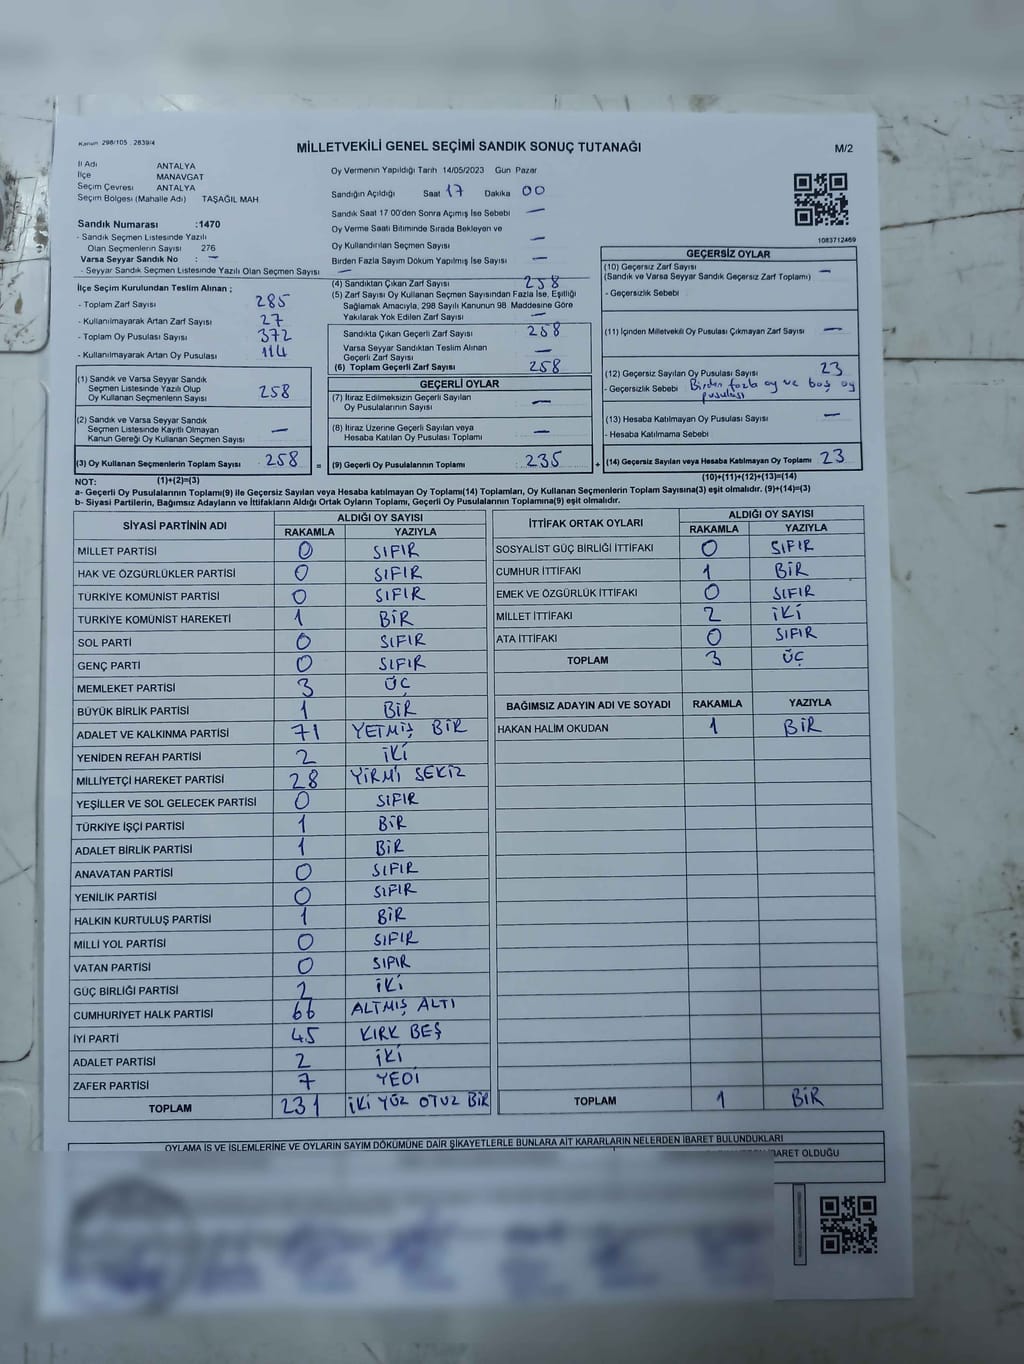 Kanun 298/105 . 2839/4
MİLLETVEKİLİ GENEL SEÇİMİ SANDIK SONUÇ TUTANAĞI
M/2
İl Adı ANTALYA
İlçe MANAVGAT
Seçim Çevresi ANTALYA
Seçim Bölgesi (Mahalle Adı) TAŞAĞIL MAH
Sandık Numarası :1470
- Sandık Seçmen Listesinde Yazılı
Olan Seçmenlerin Sayısı 276
Varsa Seyyar Sandık No : —
- Seyyar Sandık Seçmen Listesinde Yazılı Olan Seçmen Sayısı —
Oy Vermenin Yapıldığı Tarih 14/05/2023 Gün Pazar
Sandığın Açıldığı Saat 17 Dakika 00
Sandık Saat 17 00'den Sonra Açımış İse Sebebi —
Oy Verme Saati Bitiminde Sırada Bekleyen ve
Oy Kullandırılan Seçmen Sayısı —
Birden Fazla Sayım Döküm Yapılmış İse Sayısı —
1083712469
İlçe Seçim Kurulundan Teslim Alınan ;
- Toplam Zarf Sayısı 285
- Kullanılmayarak Artan Zarf Sayısı 27
- Toplam Oy Pusulası Sayısı 372
- Kullanılmayarak Artan Oy Pusulası 114
(1) Sandık ve Varsa Seyyar Sandık
Seçmen Listesinde Yazılı Olup
Oy Kullanan Seçmenlerin Sayısı 258
(2) Sandık ve Varsa Seyyar Sandık
Seçmen Listesinde Kayıtlı Olmayan
Kanun Gereği Oy Kullanan Seçmen Sayısı —
(3) Oy Kullanan Seçmenlerin Toplam Sayısı 258 =
(4) Sandıktan Çıkan Zarf Sayısı 258
(5) Zarf Sayısı Oy Kullanan Seçmen Sayısından Fazla İse, Eşitliği
Sağlamak Amacıyla, 298 Sayılı Kanunun 98 Maddesine Göre
Yakılarak Yok Edilen Zarf Sayısı —
Sandıkta Çıkan Geçerli Zarf Sayısı 258
Varsa Seyyar Sandıktan Teslim Alınan
Geçerli Zarf Sayısı —
(6) Toplam Geçerli Zarf Sayısı 258
GEÇERLİ OYLAR
(7) İtiraz Edilmeksizin Geçerli Sayılan
Oy Pusulalarının Sayısı —
(8) İtiraz Üzerine Geçerli Sayılan veya
Hesaba Katılan Oy Pusulası Toplamı —
(9) Geçerli Oy Pusulalarının Toplamı 235 +
GEÇERSİZ OYLAR
(10) Geçersiz Zarf Sayısı —
(Sandık ve Varsa Seyyar Sandık Geçersiz Zarf Toplamı)
- Geçersizlik Sebebi
(11) İçinden Milletvekili Oy Pusulası Çıkmayan Zarf Sayısı —
(12) Geçersiz Sayılan Oy Pusulası Sayısı 23
- Geçersizlik Sebebi Birden fazla oy ve boş oy
pusulası
(13) Hesaba Katılmayan Oy Pusulası Sayısı —
- Hesaba Katılmama Sebebi
(14) Geçersiz Sayılan veya Hesaba Katılmayan Oy Toplamı 23
NOT: (1)+(2)=(3) (10)+(11)+(12)+(13)=(14)
a- Geçerli Oy Pusulalarının Toplamı(9) ile Geçersiz Sayılan veya Hesaba katılmayan Oy Toplamı(14) Toplamları, Oy Kullanan Seçmenlerin Toplam Sayısına(3) eşit olmalıdır. (9)+(14)=(3)
b- Siyasi Partilerin, Bağımsız Adayların ve İttifakların Aldığı Ortak Oyların Toplamı, Geçerli Oy Pusulalarının Toplamına(9) eşit olmalıdır.
SİYASİ PARTİNİN ADI ALDIĞI OY SAYISI
RAKAMLA YAZIYLA
MİLLET PARTİSİ 0 SIFIR
HAK VE ÖZGÜRLÜKLER PARTİSİ 0 SIFIR
TÜRKİYE KOMÜNİST PARTİSİ 0 SIFIR
TÜRKİYE KOMÜNİST HAREKETİ 1 BİR
SOL PARTİ 0 SIFIR
GENÇ PARTİ 0 SIFIR
MEMLEKET PARTİSİ 3 ÜÇ
BÜYÜK BİRLİK PARTİSİ 1 BİR
ADALET VE KALKINMA PARTİSİ 71 YETMİŞ BİR
YENİDEN REFAH PARTİSİ 2 İKİ
MİLLİYETÇİ HAREKET PARTİSİ 28 YİRMİ SEKİZ
YEŞİLLER VE SOL GELECEK PARTİSİ 0 SIFIR
TÜRKİYE İŞÇİ PARTİSİ 1 BİR
ADALET BİRLİK PARTİSİ 1 BİR
ANAVATAN PARTİSİ 0 SIFIR
YENİLİK PARTİSİ 0 SIFIR
HALKIN KURTULUŞ PARTİSİ 1 BİR
MİLLİ YOL PARTİSİ 0 SIFIR
VATAN PARTİSİ 0 SIFIR
GÜÇ BİRLİĞİ PARTİSİ 2 İKİ
CUMHURİYET HALK PARTİSİ 66 ALTMIŞ ALTI
İYİ PARTİ 45 KIRK BEŞ
ADALET PARTİSİ 2 İKİ
ZAFER PARTİSİ 7 YEDİ
TOPLAM 231 İKİ YÜZ OTUZ BİR
İTTİFAK ORTAK OYLARI ALDIĞI OY SAYISI
RAKAMLA YAZIYLA
SOSYALİST GÜÇ BİRLİĞİ İTTİFAKI 0 SIFIR
CUMHUR İTTİFAKI 1 BİR
EMEK VE ÖZGÜRLÜK İTTİFAKI 0 SIFIR
MİLLET İTTİFAKI 2 İKİ
ATA İTTİFAKI 0 SIFIR
TOPLAM 3 ÜÇ
BAĞIMSIZ ADAYIN ADI VE SOYADI RAKAMLA YAZIYLA
HAKAN HALİM OKUDAN 1 BİR
TOPLAM 1 BİR
OYLAMA İŞ VE İŞLEMLERİNE VE OYLARIN SAYIM DÖKÜMÜNE DAİR ŞİKAYETLERLE BUNLARA AİT KARARLARIN NELERDEN İBARET BULUNDUKLARI
İBARET OLDUĞU